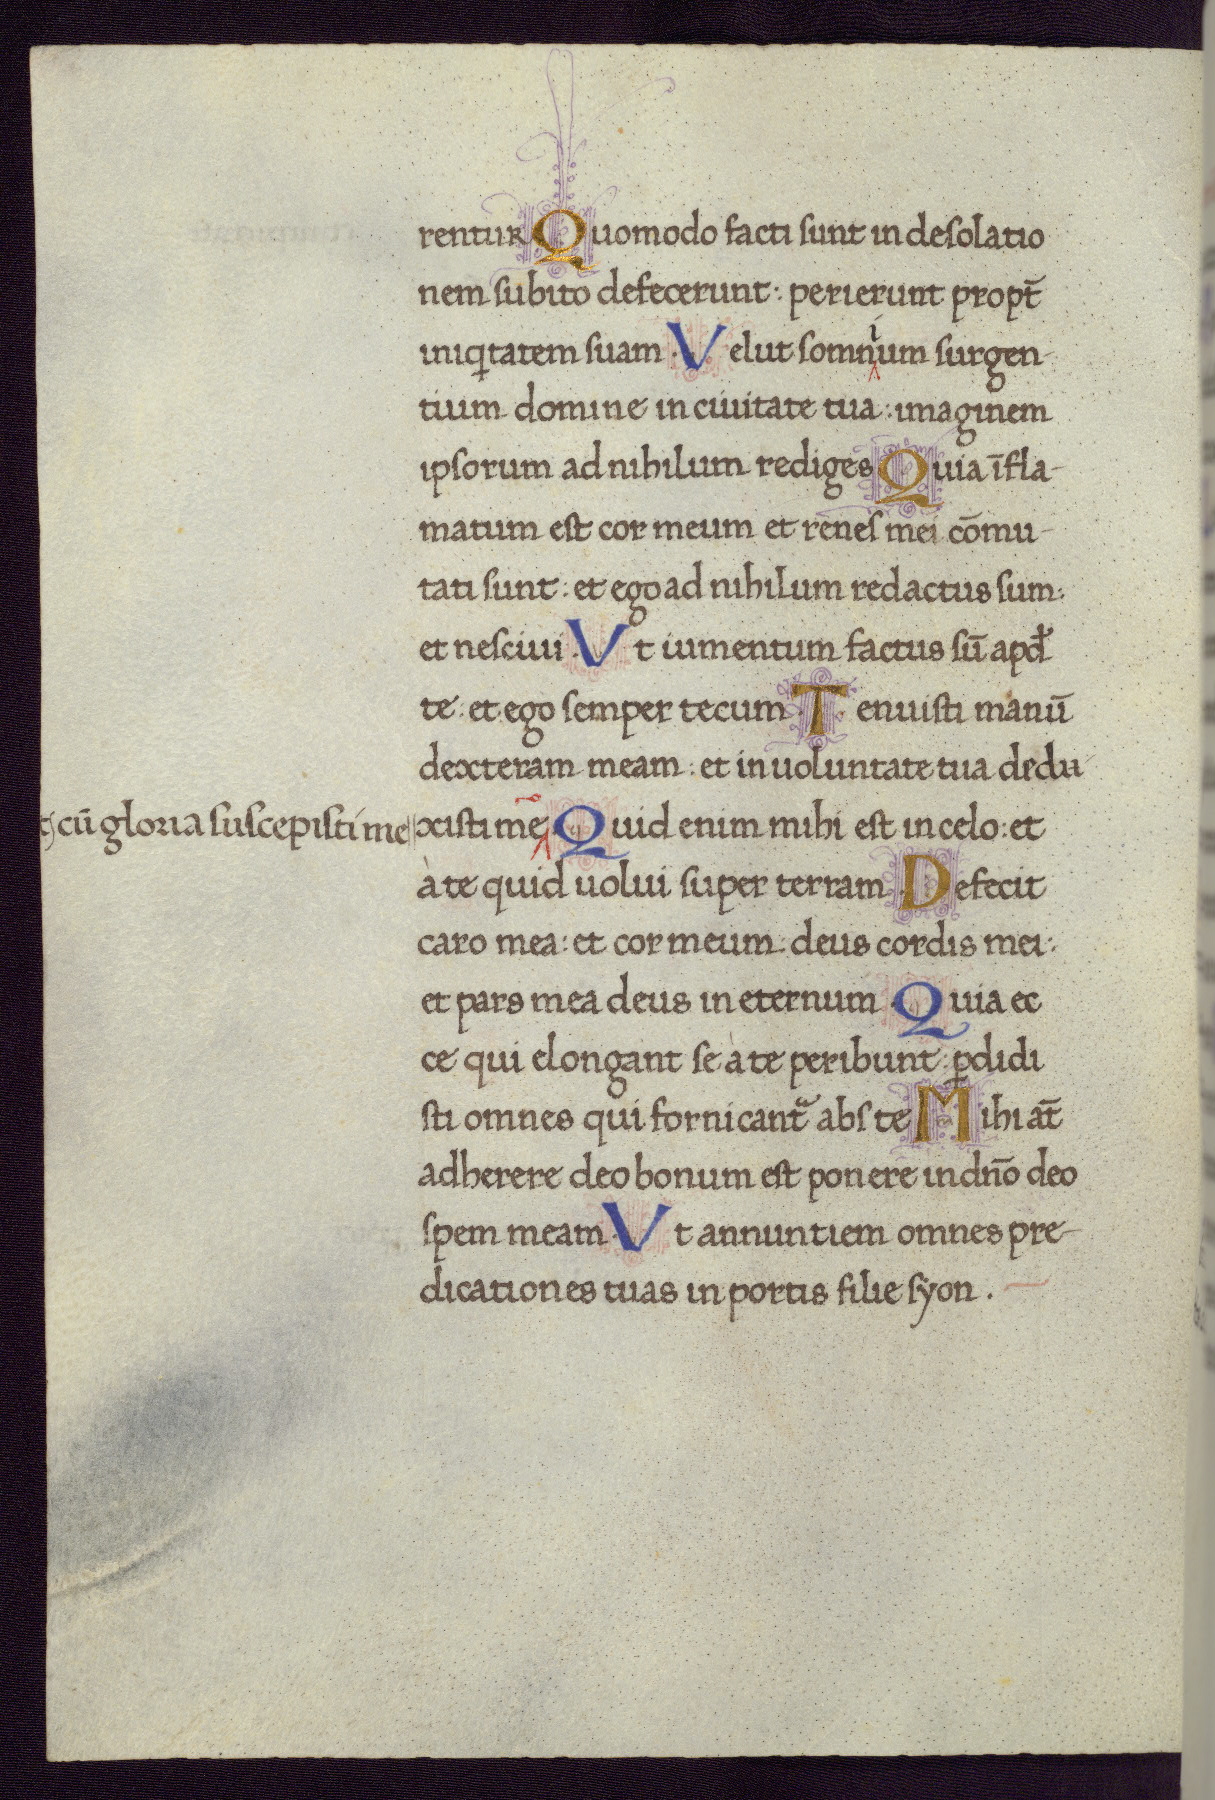 rentur Quomodo facti sunt in desolatio
nem subito defecerunt: perierunt propt̄
iniqͥtatem suam. Velut somnium surgen-
tium domine in ciuitate tua: imaginem
ipsorum ad nihilum rediges Quia īfla-
matum est cor meum et renes mei cōmu-
tati sunt: et ego ad nihilum redactus sum:
et nesciui. Vt iumentum factus sū apd̕
te: et ego semper tecum. Tenuisti manū
dexteram meam: et in uoluntate tua dedu
⁊ cū gloria suscepisti me
xisti me Quid enim mihi est in celo: et
à te quid uolui super terram. Defecit
caro mea: et cor meum: deus cordis mei:
et pars mea deus in eternum. Quia ec
ce qui elongant se à te peribunt: ꝑdidi
sti omnes qui fornicant᷑ abs te Mihi at̄
adherere deo bonum est ponere in dn̄o deo
spem meam. Vt annuntiem omnes pre-
dicationes tuas in portis filie syon.